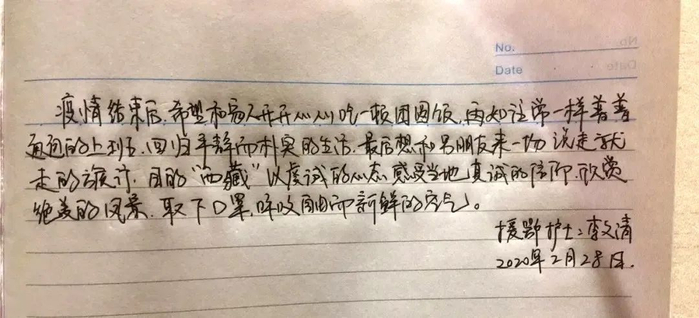 No.
Date
疫情结束后,希望和家人开开心心吃一顿团圆饭,再如往常一样普普
通通的上班,回归平静而朴实的生活.最后想和男朋友来一场说走就
走的旅行.目的“西藏”以虔诚的心态感受当地真诚的信仰.欣赏
绝美的风景.取下口罩,呼吸自由而新鲜的空气。
援鄂护士:李文清
2020年2月28日.